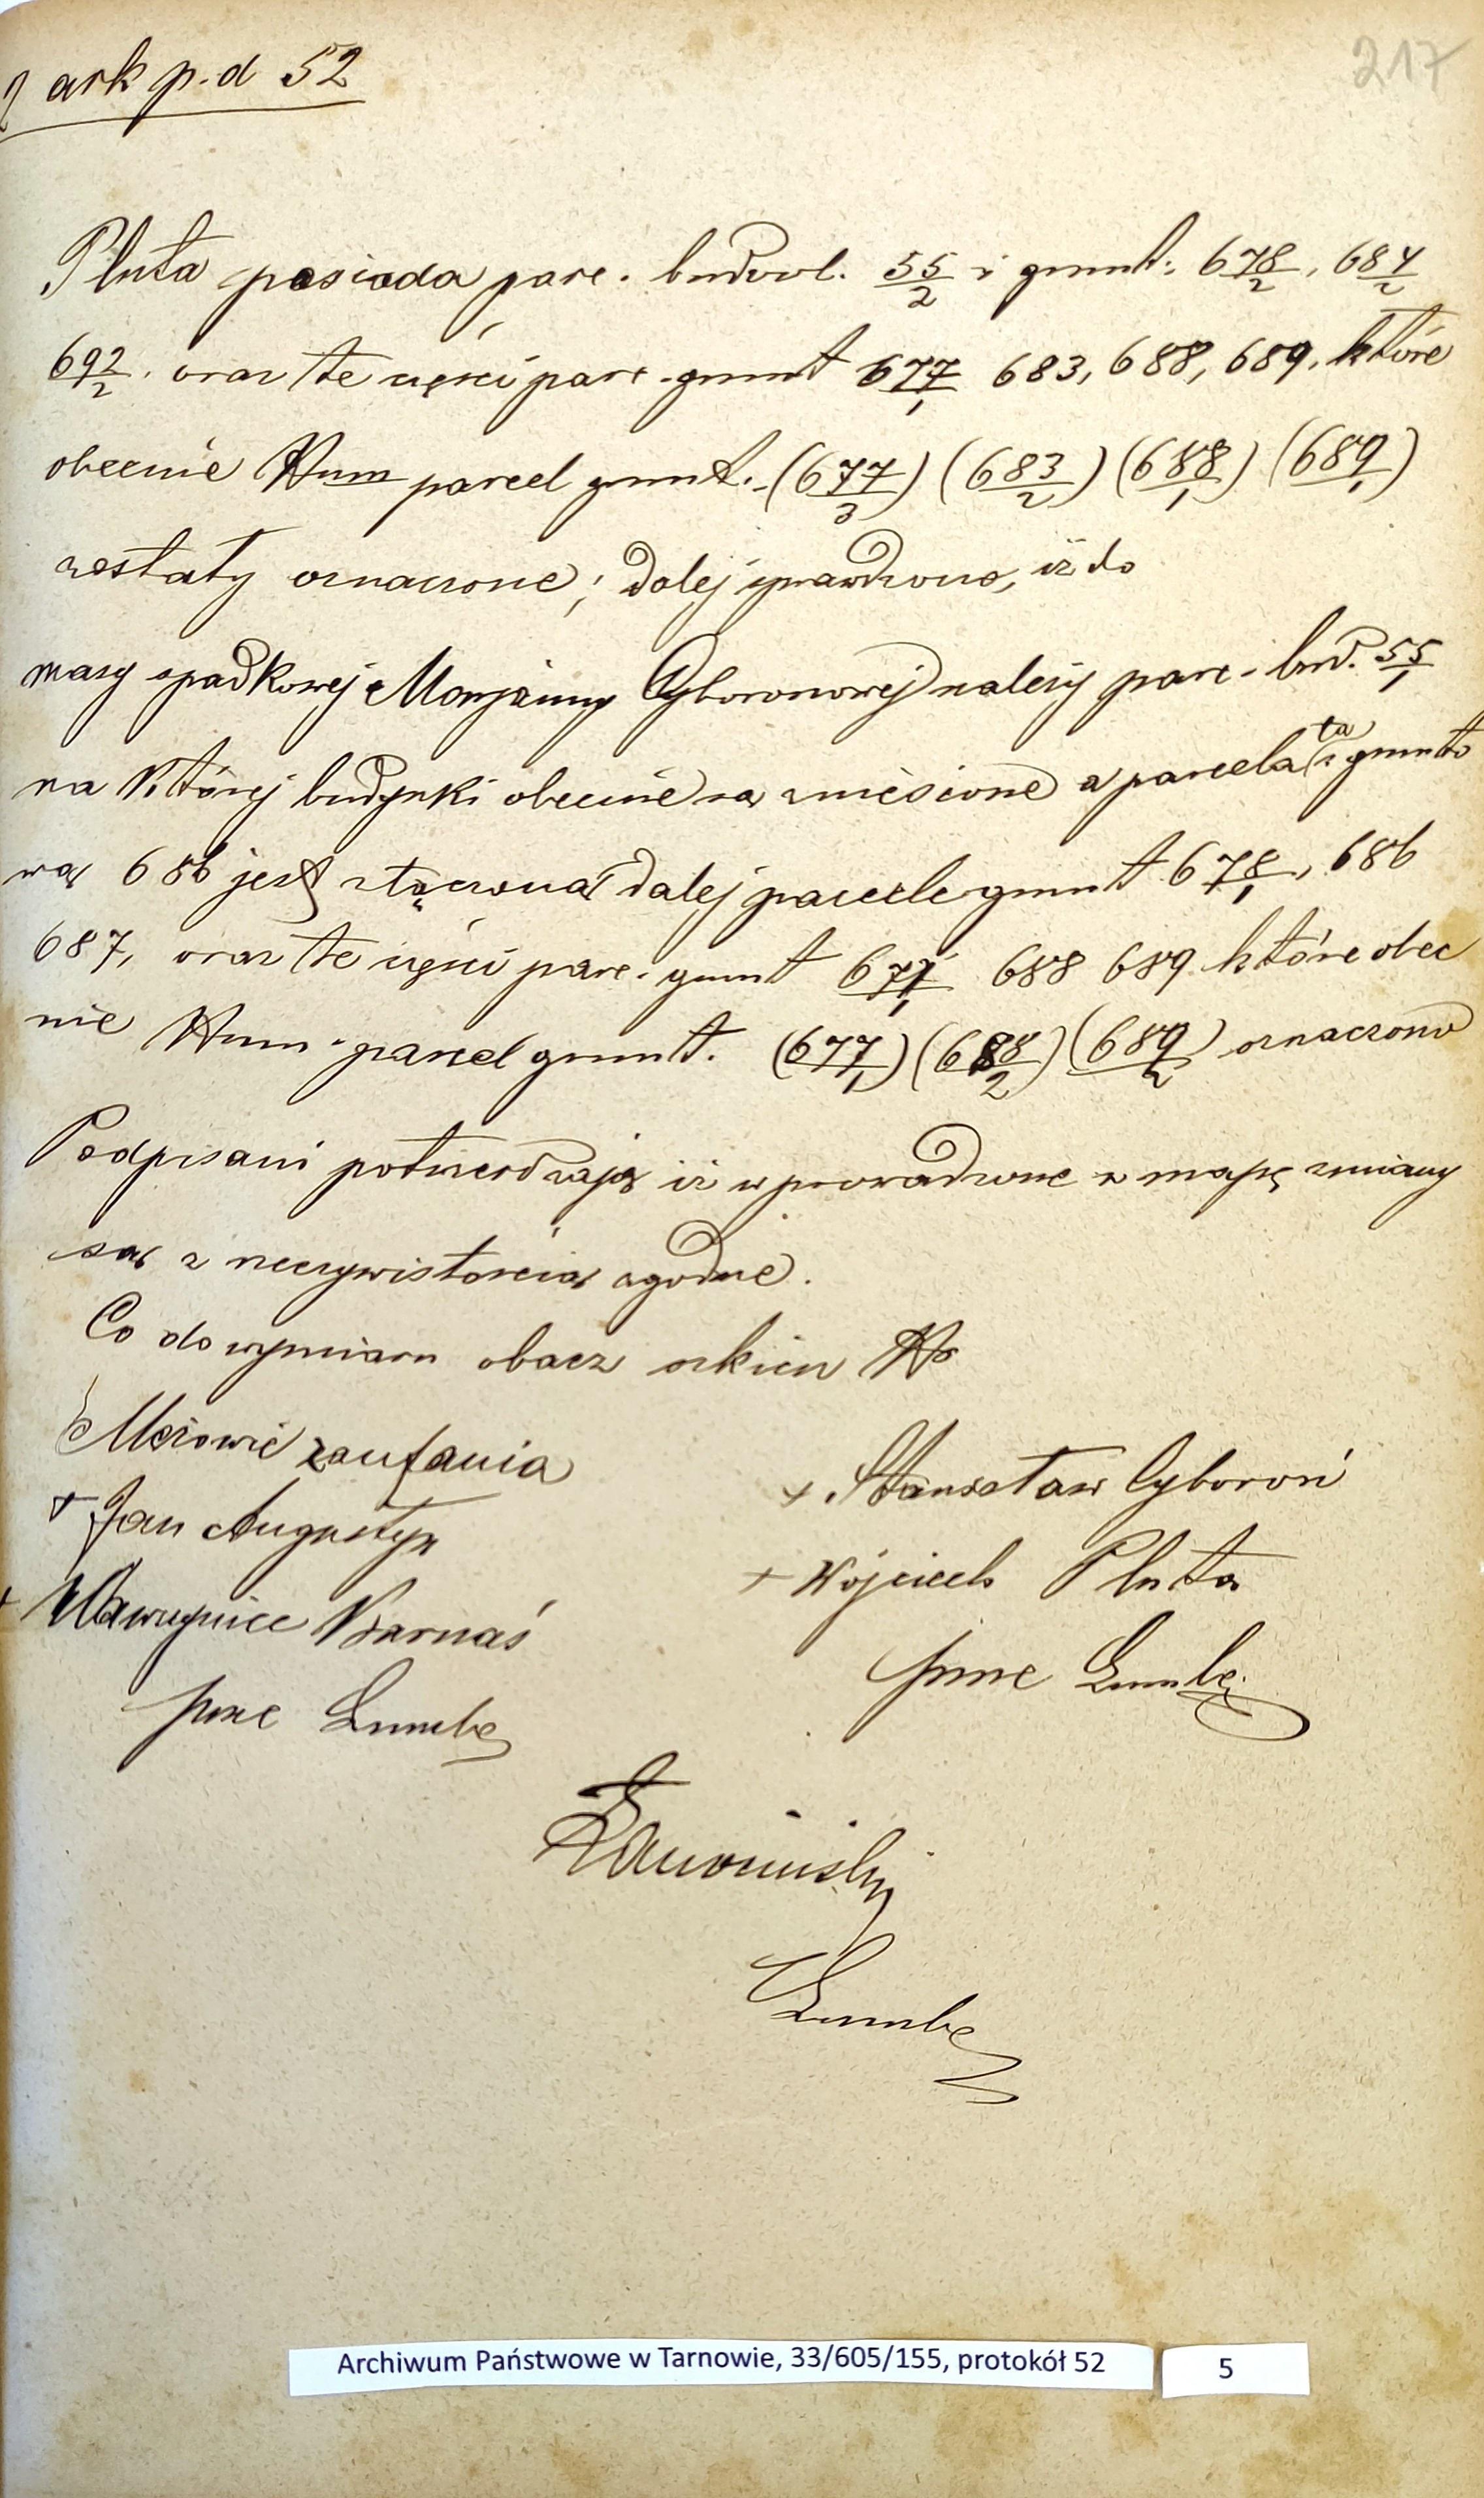 ark p. d 52
217
Pluta posiada parc. budowl. 55/2 i grunt. 678/2, 684/2
692/2. oraz te części parc. grunt 677/1 683, 688, 689, które
obecnie Num parcel grunt. (677/3) (683/2) (688/1) (689/1)
zostały oznaczone; dalej sprawdzono, iż do
masy spadkowej Maryanny Cyboronowej należy parc. bud. 55/1
na której budynki obecnie są zniesione a parcela ta z grunto
wą 686 jest złączona dalej parcele grunt 678/1, 686
687, oraz te części parc. grunt 677/1 688 689 które obec
nie Num. parcel grunt. (677/1) (688/2) (689/2) oznaczono
Podpisani potwierdzają iż wprowadzone w mapę zmiany
są z rzeczywistością zgodne.
Co do wymiaru obacz szkicu No
Mężowie zaufania
+ Jan Augustyn
+ Wawrzyniec Barnaś
+ Stanisław Cyboroń
+ Wojciech Pluta
Archiwum Państwowe w Tarnowie, 33/605/155, protokół 52
5